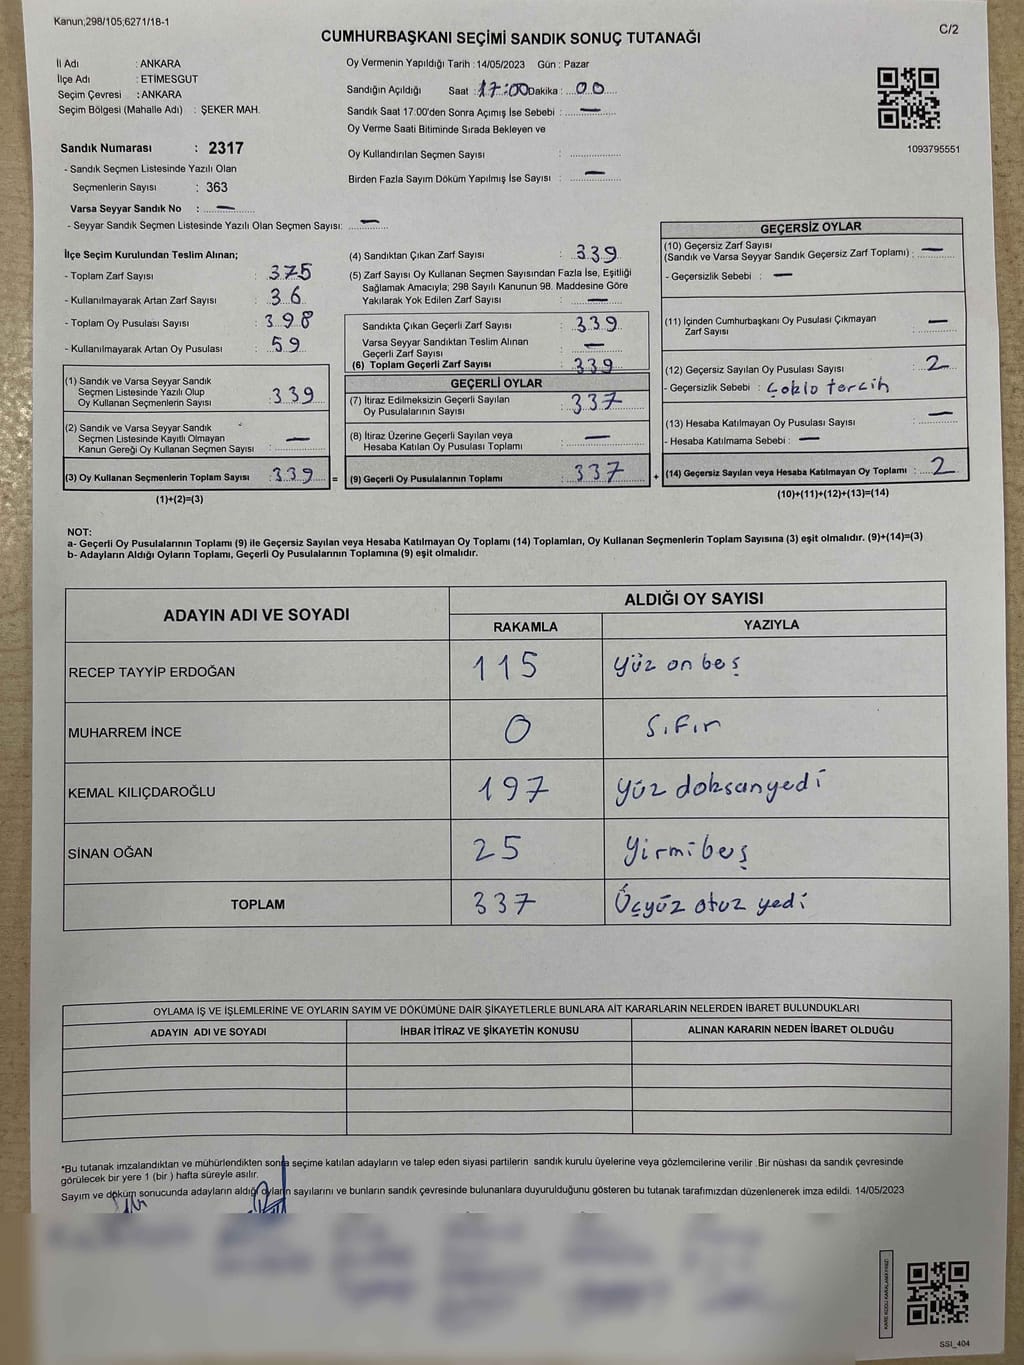 Kanun;298/105;6271/18-1
C/2
CUMHURBAŞKANI SEÇİMİ SANDIK SONUÇ TUTANAĞI
İl Adı : ANKARA
İlçe Adı : ETİMESGUT
Seçim Çevresi : ANKARA
Seçim Bölgesi (Mahalle Adı) : ŞEKER MAH.
Oy Vermenin Yapıldığı Tarih : 14/05/2023 Gün : Pazar
Sandığın Açıldığı Saat : 17:00 Dakika : 00
Sandık Saat 17:00'den Sonra Açımış İse Sebebi : —
Oy Verme Saati Bitiminde Sırada Bekleyen ve
Oy Kullandırılan Seçmen Sayısı :
Birden Fazla Sayım Döküm Yapılmış İse Sayısı : —
1093795551
Sandık Numarası : 2317
- Sandık Seçmen Listesinde Yazılı Olan
Seçmenlerin Sayısı : 363
Varsa Seyyar Sandık No : —
- Seyyar Sandık Seçmen Listesinde Yazılı Olan Seçmen Sayısı: —
İlçe Seçim Kurulundan Teslim Alınan;
- Toplam Zarf Sayısı : 375
- Kullanılmayarak Artan Zarf Sayısı : 36
- Toplam Oy Pusulası Sayısı : 398
- Kullanılmayarak Artan Oy Pusulası : 59
(1) Sandık ve Varsa Seyyar Sandık
Seçmen Listesinde Yazılı Olup
Oy Kullanan Seçmenlerin Sayısı : 339
(2) Sandık ve Varsa Seyyar Sandık
Seçmen Listesinde Kayıtlı Olmayan
Kanun Gereği Oy Kullanan Seçmen Sayısı : —
(3) Oy Kullanan Seçmenlerin Toplam Sayısı : 339
(1)+(2)=(3)
=
(4) Sandıktan Çıkan Zarf Sayısı : 339
(5) Zarf Sayısı Oy Kullanan Seçmen Sayısından Fazla İse, Eşitliği
Sağlamak Amacıyla; 298 Sayılı Kanunun 98. Maddesine Göre
Yakılarak Yok Edilen Zarf Sayısı : —
Sandıkta Çıkan Geçerli Zarf Sayısı : 339
Varsa Seyyar Sandıktan Teslim Alınan
Geçerli Zarf Sayısı : —
(6) Toplam Geçerli Zarf Sayısı : 339
GEÇERLİ OYLAR
(7) İtiraz Edilmeksizin Geçerli Sayılan
Oy Pusulalarının Sayısı : 337
(8) İtiraz Üzerine Geçerli Sayılan veya
Hesaba Katılan Oy Pusulası Toplamı : —
(9) Geçerli Oy Pusulalarının Toplamı : 337
+
GEÇERSİZ OYLAR
(10) Geçersiz Zarf Sayısı
(Sandık ve Varsa Seyyar Sandık Geçersiz Zarf Toplamı) : —
- Geçersizlik Sebebi : —
(11) İçinden Cumhurbaşkanı Oy Pusulası Çıkmayan
Zarf Sayısı : —
(12) Geçersiz Sayılan Oy Pusulası Sayısı : 2
- Geçersizlik Sebebi : Çoklo tercih
(13) Hesaba Katılmayan Oy Pusulası Sayısı : —
- Hesaba Katılmama Sebebi : —
(14) Geçersiz Sayılan veya Hesaba Katılmayan Oy Toplamı : 2
(10)+(11)+(12)+(13)=(14)
NOT:
a- Geçerli Oy Pusulalarının Toplamı (9) ile Geçersiz Sayılan veya Hesaba Katılmayan Oy Toplamı (14) Toplamları, Oy Kullanan Seçmenlerin Toplam Sayısına (3) eşit olmalıdır. (9)+(14)=(3)
b- Adayların Aldığı Oyların Toplamı, Geçerli Oy Pusulalarının Toplamına (9) eşit olmalıdır.
ADAYIN ADI VE SOYADI
ALDIĞI OY SAYISI
RAKAMLA YAZIYLA
RECEP TAYYİP ERDOĞAN 115 yüz on beş
MUHARREM İNCE 0 Sıfır
KEMAL KILIÇDAROĞLU 197 yüz doksanyedi
SİNAN OĞAN 25 yirmibeş
TOPLAM 337 Üçyüz otuz yedi
OYLAMA İŞ VE İŞLEMLERİNE VE OYLARIN SAYIM VE DÖKÜMÜNE DAİR ŞİKAYETLERLE BUNLARA AİT KARARLARIN NELERDEN İBARET BULUNDUKLARI
ADAYIN ADI VE SOYADI İHBAR İTİRAZ VE ŞİKAYETİN KONUSU ALINAN KARARIN NEDEN İBARET OLDUĞU
*Bu tutanak imzalandıktan ve mühürlendikten sonra seçime katılan adayların ve talep eden siyasi partilerin sandık kurulu üyelerine veya gözlemcilerine verilir .Bir nüshası da sandık çevresinde
görülecek bir yere 1 (bir ) hafta süreyle asılır.
Sayım ve döküm sonucunda adayların aldığı oyların sayılarını ve bunların sandık çevresinde bulunanlara duyurulduğunu gösteren bu tutanak tarafımızdan düzenlenerek imza edildi. 14/05/2023
SSI_404